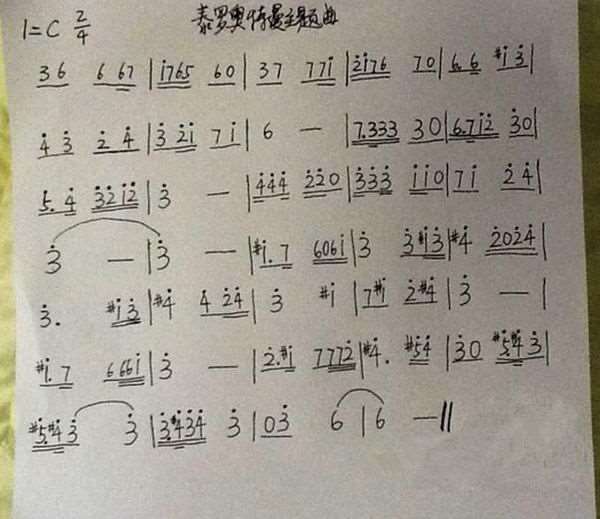 1=C 2/4 泰罗奥特曼主题曲
36 6 67 | i̇765 60 | 37 77i̇ | 2̇i̇76 70 | 6.6 #i̇ 3̇ |
4̇ 3̇ 2̇ 4̇ | 3̇ 2̇i̇ 7i̇ | 6 — | 7.333 30 | 6.7i̇2̇ 3̇0 |
5.4̇ 3̇2̇i̇2̇ | 3̇ — | 4̇4̇4̇ 2̇2̇0 | 3̇3̇3̇ i̇i̇0 | 7i̇ 2̇4̇ |
3̇ — | 3̇ — | #i̇.7 606i̇ | 3̇ 3̇#i̇3̇ | #4̇ 2̇02̇4̇ |
3̇. #i̇3̇ | #4̇ 4̇ 2̇4̇ | 3̇ #i̇ | 7#i̇ 2̇#4̇ | 3̇ — |
#i̇.7 666i̇ | 3̇ — | 2̇.#i̇ 7772̇ | #4̇. #5̇4̇ | 3̇0 #5̇#4̇ 3̇ |
#5̇#4̇3̇ 3̇ | 3̇#4̇3̇4̇ 3̇ | 03̇ 6 | 6 — ||